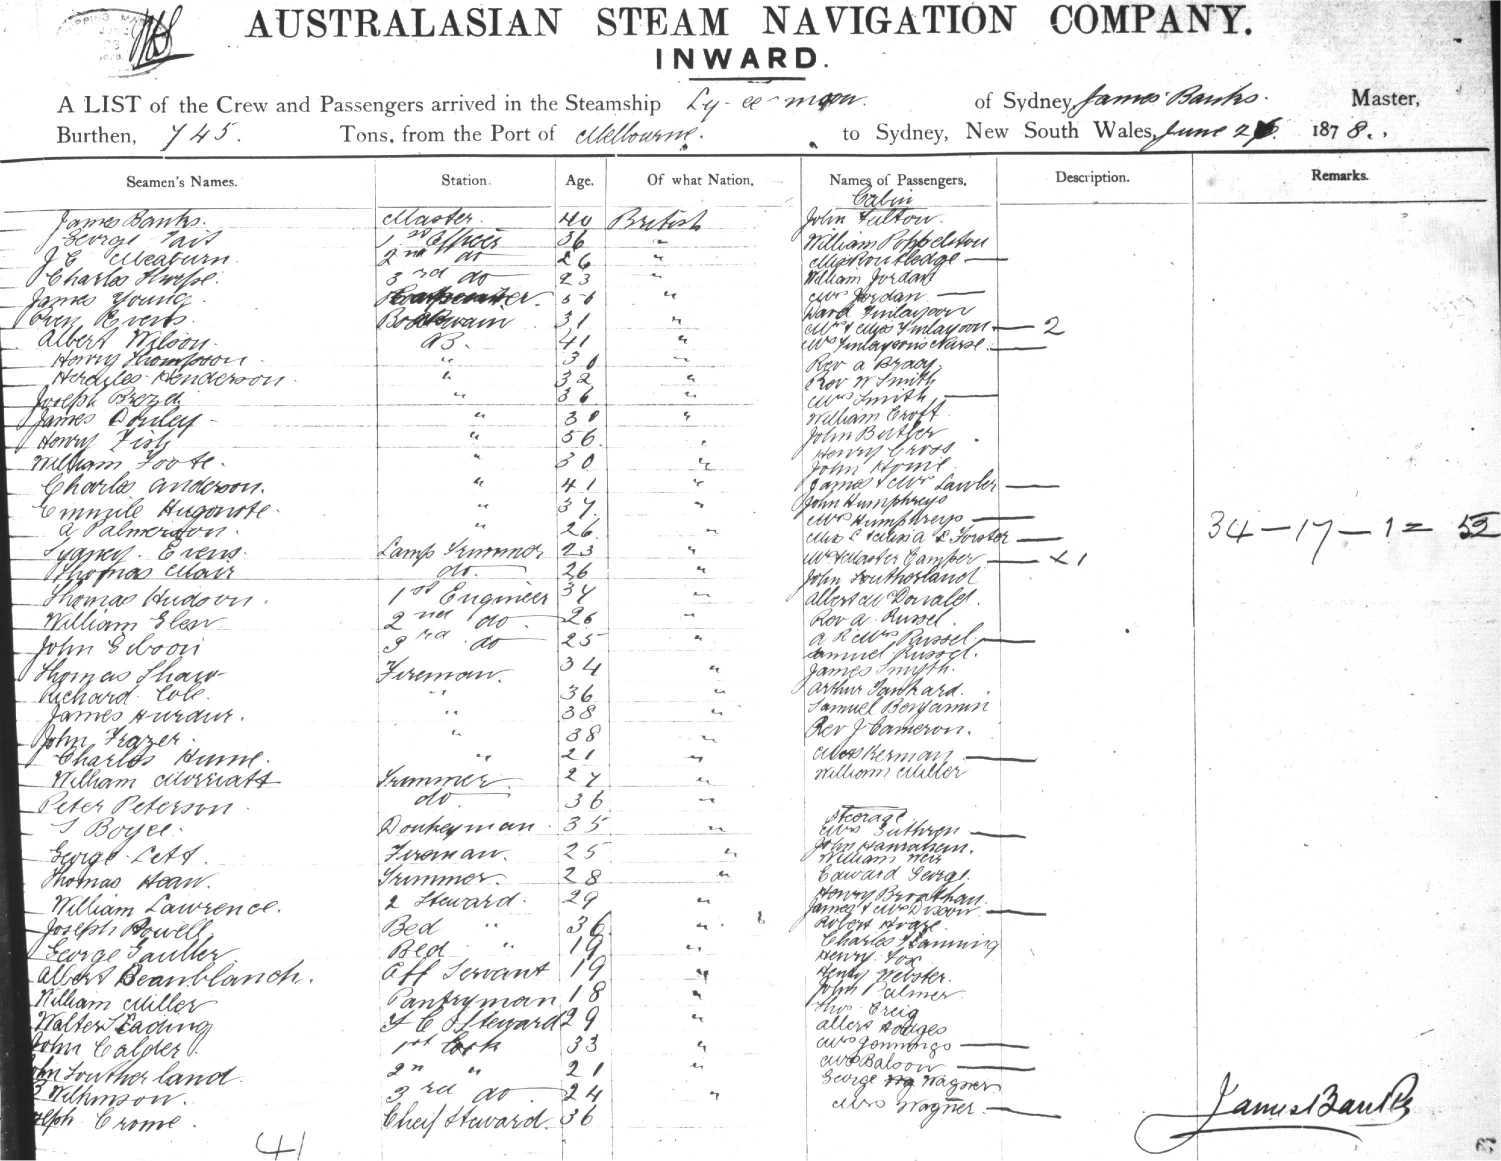 AUSTRALASIAN STEAM NAVIGATION COMPANY.
INWARD.
A LIST of the Crew and Passengers arrived in the Steamship Ly-ee-moon. of Sydney, James Banks. Master,
Burthen, 745. Tons, from the Port of Melbourne. to Sydney, New South Wales, June 26 1878.
Seamen's Names. Station. Age. Of what Nation, Names of Passengers, Description. Remarks.
Cabin
James Banks. Master. 40 British John Fulton.
George Tait 1st Officer 36 " William Poppelston
J E Meaburn 2nd do 26 " Routledge
Charles 3rd do 23 " William Jordan
James Young Carpenter. " Mrs Jordan
Evens Boatswain 31 " Ward Finlayson
Albert Wilson. AB. 41 " Mr & Miss Finlayson 2
Henry Thompson " 30 " Mrs Finlayson's Nurse
Hercules Henderson. " 32 " Rev A Brady
Joseph " 36 " Rev W Smith
James Donley " 30 " Mrs Smith
Henry Fish " 56 William Croft
William Foote. " 30 " John Butler
Henry Cross
John Home
Charles Anderson. " 41 " James & Mrs Lawler
Emmile Hugonote. " 37 " John Humphreys
A Palmerston. " 26 " Mrs Humphreys
34 - 17 - 1 = 52
Sydney. Evens. Lamp Trimmer 23 " Forster
Thomas Mair do. 26 " Mr & Master Gamper x 1
John Southerland
Thomas Hudson. 1st Engineer 37 " Albert Donald.
William Glen 2nd do. 26 " Rev A. Russel.
John Gibson 3rd do 25 " Mrs Russel
Samuel Russel.
Thomas Shaw Fireman. 34 " James Smyth.
Richard Cole. " 36 " Arthur Tankard.
James " 38 " Samuel Benjamin
John Frazer. " 38 " Rev J Cameron.
Charles Hume. " 21 " Herman
William Trimmer 27 " William Miller
Peter Peterson. do. 36 "
Steerage
Boyce. Donkeyman. 35 " Mrs Guthren
George Lett. Fireman. 25 " John Hanrahan.
William Weir
Thomas Hean. Trimmer. 28 " Edward George.
William Lawrence. 2 Steward. 29 " Henry
James & Mrs Dixon
Joseph Powell Bed " 36 " Robert
George Fauller Bed " 19 " Charles Manning
Henry. Fox
Albert Beanblanch. Off Servant 19 " Henry Webster.
William Miller Pantryman 18 " John Palmer
Walter F C Steward 29 " Thos Greig
Albert Hodges
John Calder. 1st Cook 33 " Mrs Jennings
John Southerland 2nd " 21 " Mrs Balson
Wilkinson. 3rd do 24 " George Wagner
Crome. Cheif Steward. 36 Mrs Wagner
James Banks
41